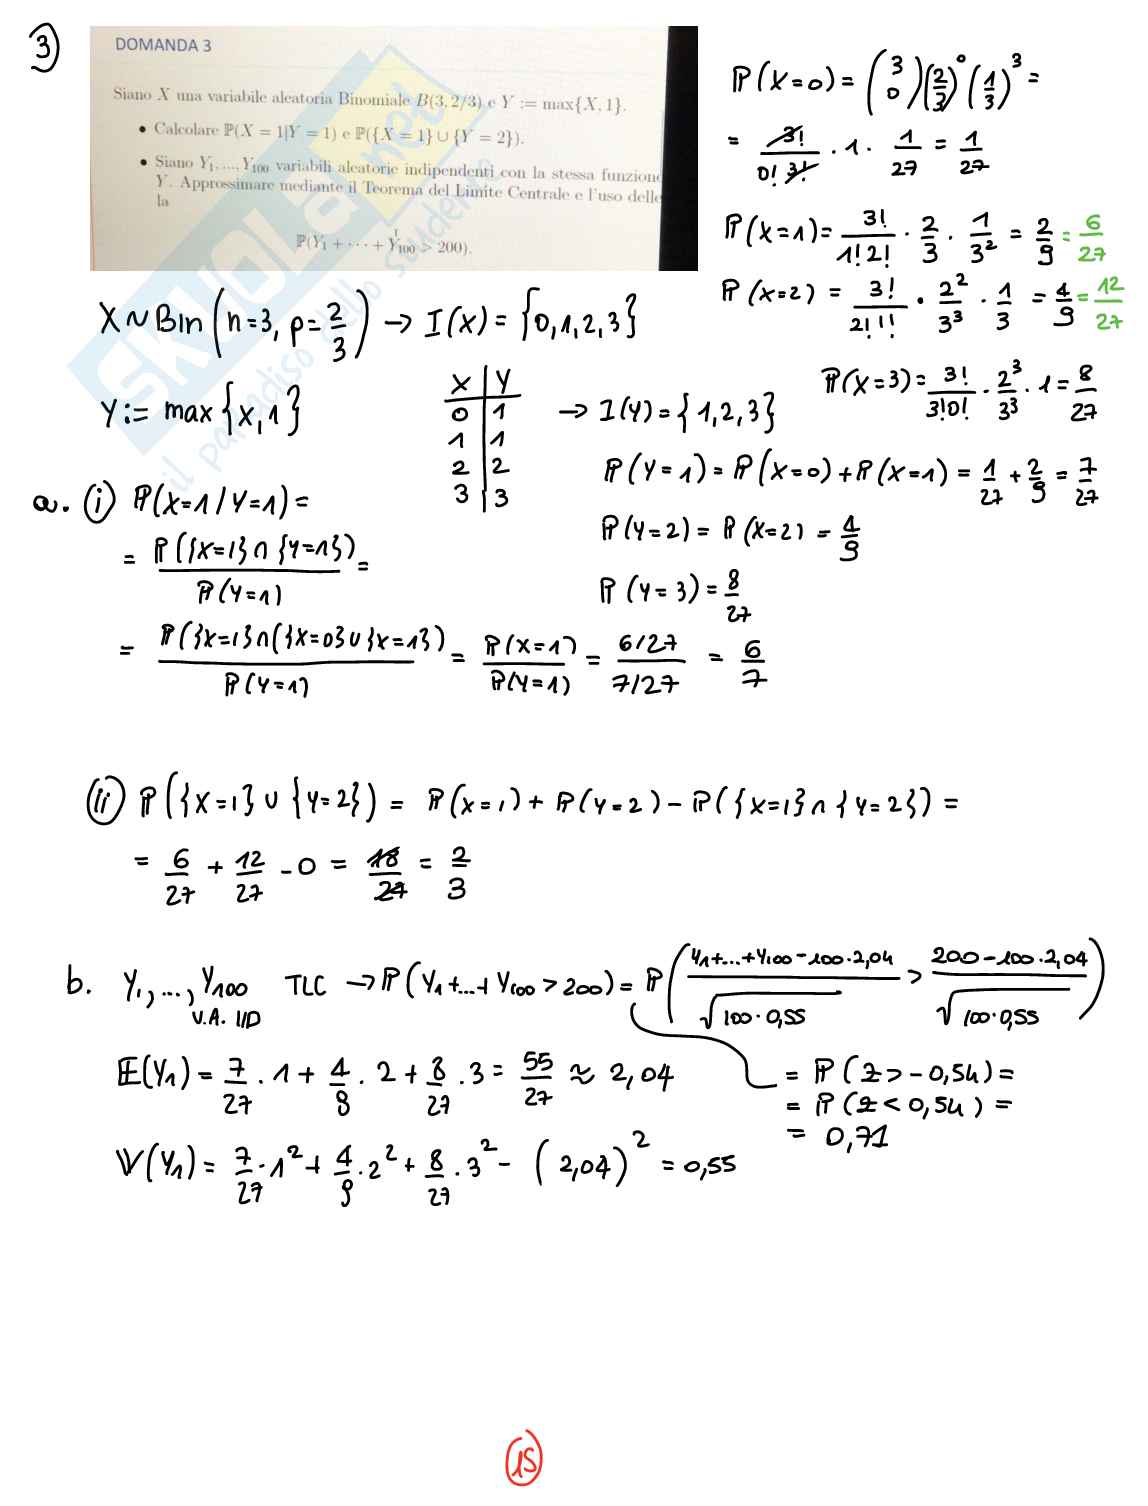 3)
DOMANDA 3
Siano X una variabile aleatoria Binomiale B(3, 2/3) e Y := max{X, 1}.
• Calcolare ℙ(X = 1|Y = 1) e ℙ({X = 1} ∪ {Y = 2}).
• Siano Y₁, ..., Y₁₀₀ variabili aleatorie indipendenti con la stessa funzione
Y. Approssimare mediante il Teorema del Limite Centrale e l'uso delle
la
ℙ(Y₁ + ··· + Y₁₀₀ > 200).
SKUOLA.net
il paradiso dello studente
ℙ(X=0) = (3 0) (2/3)⁰ (1/3)³ =
= 3!/0!3! · 1 · 1/27 = 1/27
ℙ(X=1) = 3!/1!2! · 2/3 · 1/3² = 2/9 = 6/27
ℙ(X=2) = 3!/2!1! · 2²/3³ · 1/3 = 4/9 = 12/27
ℙ(X=3) = 3!/3!0! · 2³/3³ · 1 = 8/27
X ~ Bin(n=3, p=2/3) → I(X) = {0, 1, 2, 3}
Y := max{X, 1}
X | Y
0 | 1
1 | 1
2 | 2
3 | 3
→ I(Y) = {1, 2, 3}
ℙ(Y=1) = ℙ(X=0) + ℙ(X=1) = 1/27 + 2/9 = 7/27
ℙ(Y=2) = ℙ(X=2) = 4/9
ℙ(Y=3) = 8/27
a. (i) ℙ(X=1 / Y=1) =
= ℙ({X=1} ∩ {Y=1}) / ℙ(Y=1) =
= ℙ({X=1} ∩ ({X=0} ∪ {X=1}) / ℙ(Y=1) = ℙ(X=1) / ℙ(Y=1) = 6/27 / 7/27 = 6/7
(ii) ℙ({X=1} ∪ {Y=2}) = ℙ(X=1) + ℙ(Y=2) − ℙ({X=1} ∩ {Y=2}) =
= 6/27 + 12/27 − 0 = 18/27 = 2/3
b. Y₁, ..., Y₁₀₀ TLC → ℙ(Y₁+...+Y₁₀₀ > 200) = ℙ( Y₁+...+Y₁₀₀−100·2,04 / √100·0,55 > 200−100·2,04 / √100·0,55 )
V.A. IID
𝔼(Y₁) = 7/27 · 1 + 4/9 · 2 + 8/27 · 3 = 55/27 ≈ 2,04
= ℙ(Z > −0,54) =
= ℙ(Z < 0,54) =
= 0,71
𝕍(Y₁) = 7/27 · 1² + 4/9 · 2² + 8/27 · 3² − (2,04)² = 0,55
15